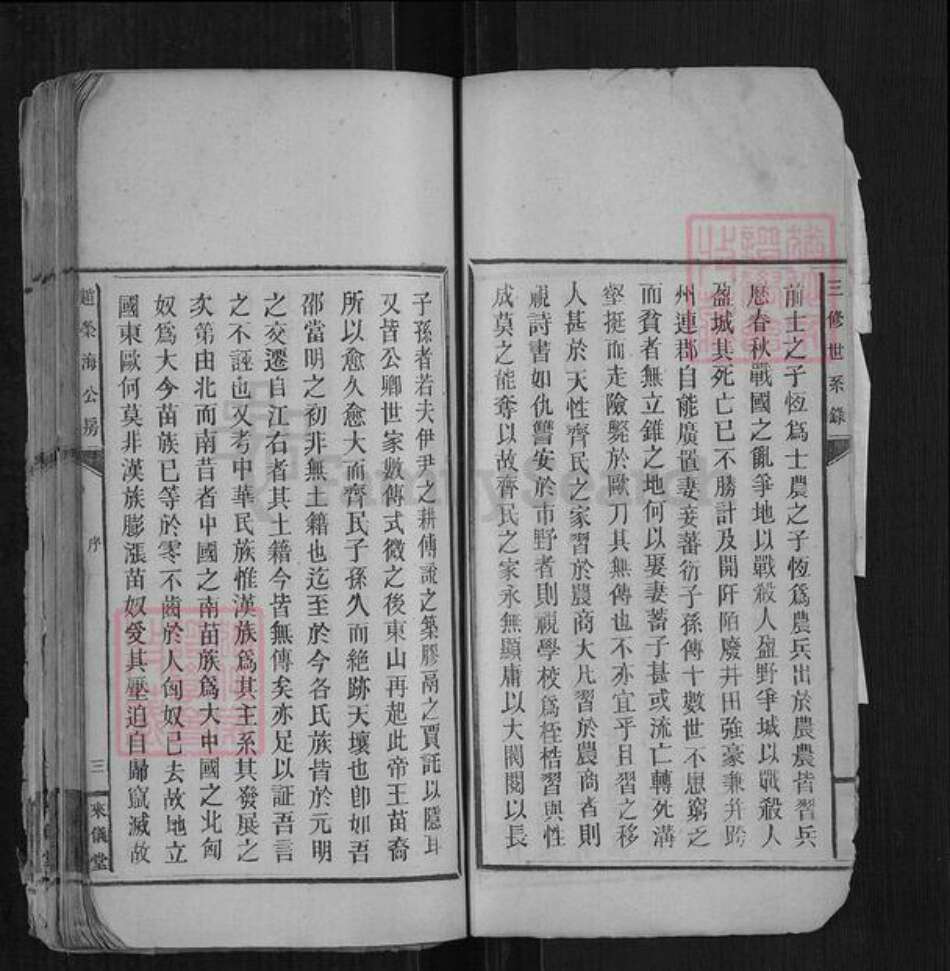 三修世系錄
前士之子恆爲士農之子恆爲農兵出於農農皆習兵
歷春秋戰國之亂爭地以戰殺人盈野爭城以戰殺人
盈城其死亡已不勝計及開阡陌廢井田強豪兼并跨
州連郡自能廣置妻妾蕃衍子孫傳十數世不患窮之
而貧者無立錐之地何以娶妻蓄子甚或流亡轉死溝
壑挺而走險斃於歐刀其無傳也不亦宜乎且習之移
人甚於天性齊民之家習於農商大凡習於農商者則
視詩書如仇讐安於市野者則視學校爲桎梏習與性
成莫之能奪以故齊民之家永無顯庸以大閥閱以長
子孫者若夫伊尹之耕傅說之築膠鬲之賈託以隱耳
又皆公卿世家數傳式微之後東山再起此帝王苗裔
所以愈久愈大而齊民子孫久而絕跡天壤也卽如吾
邵當明之初非無土籍也迄至於今各氏族皆於元明
之交遷自江右者其土籍今皆無傳矣亦足以証吾言
之不誣也又考中華民族惟漢族爲其主系其發展之
次第由北而南昔者中國之南苗族爲大中國之北匈
奴爲大今苗族已等於零不齒於人匈奴已去故地立
國東歐何莫非漢族膨漲苗奴受其壓迫自歸竄滅故
趙榮海公房
序
三
來儀堂